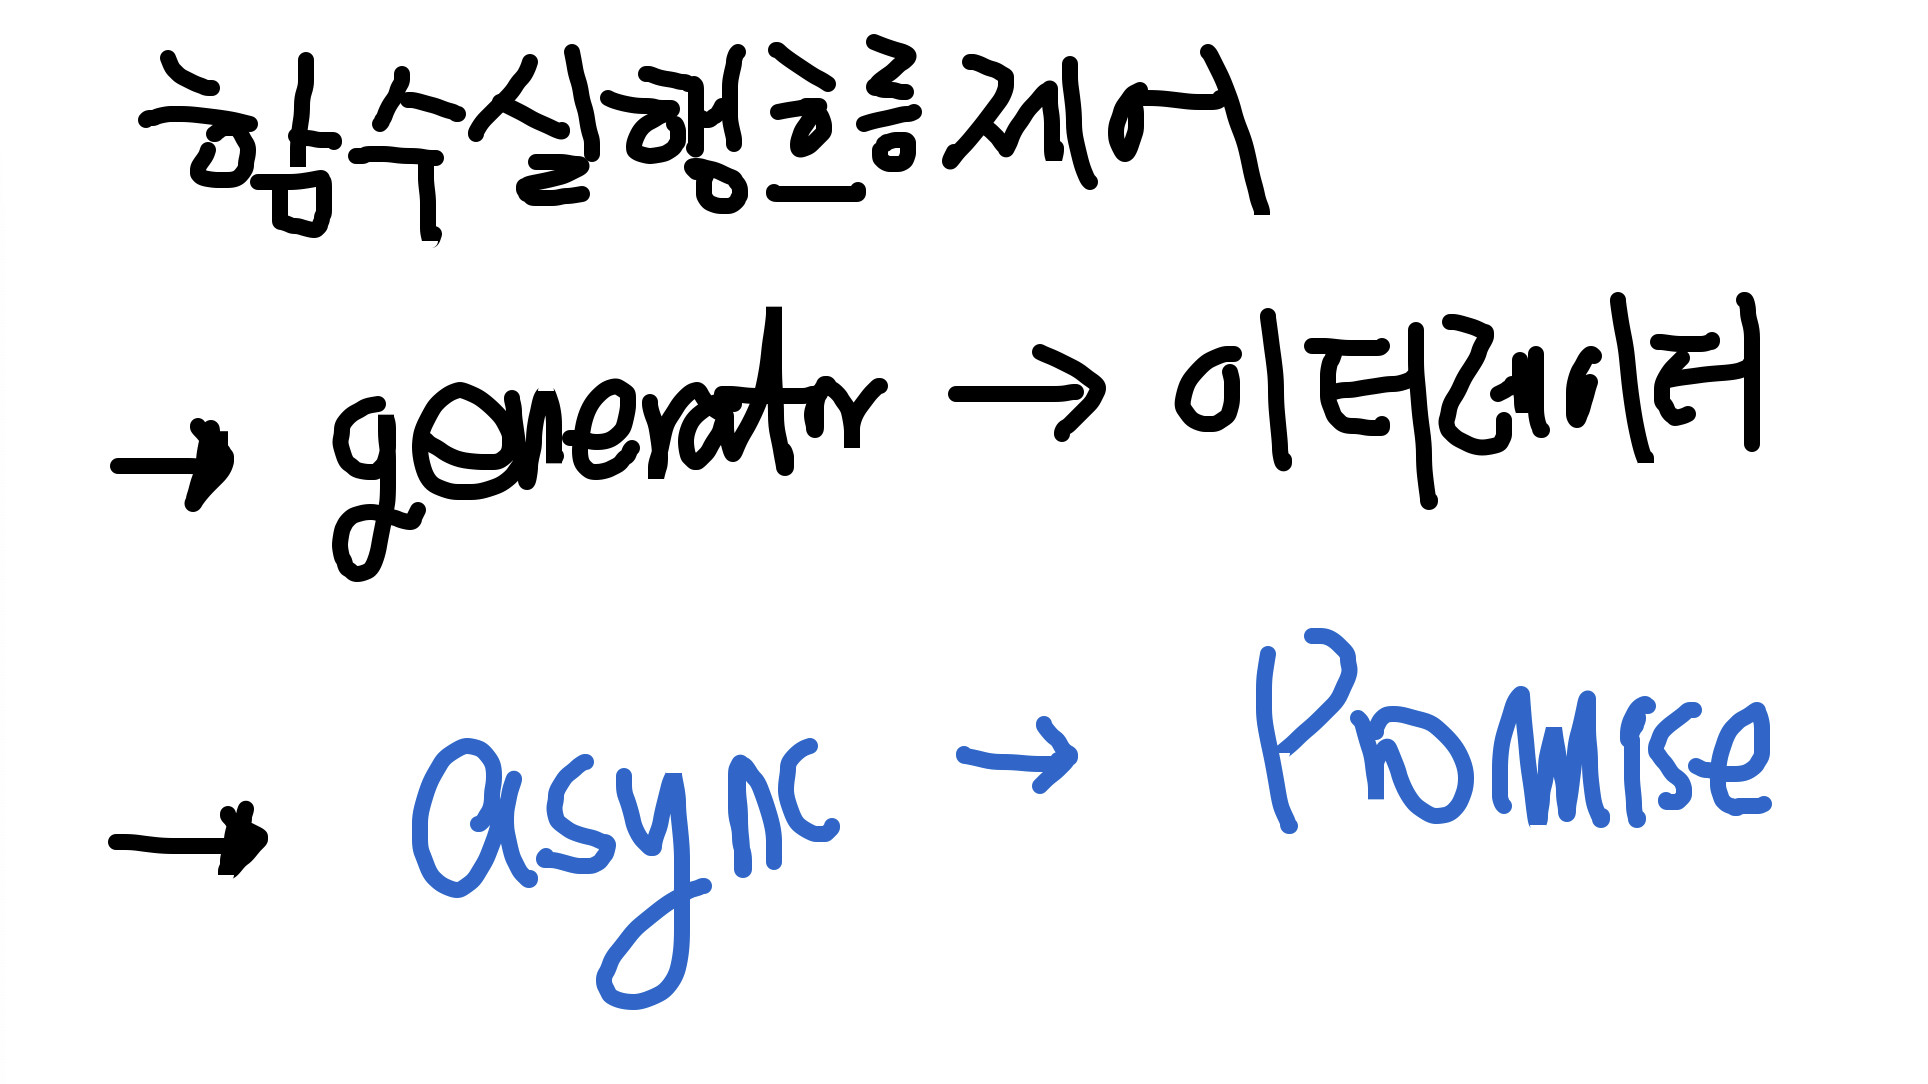 함수실행흐름제어
→ generatr → 이터레이터
→ async → Promise